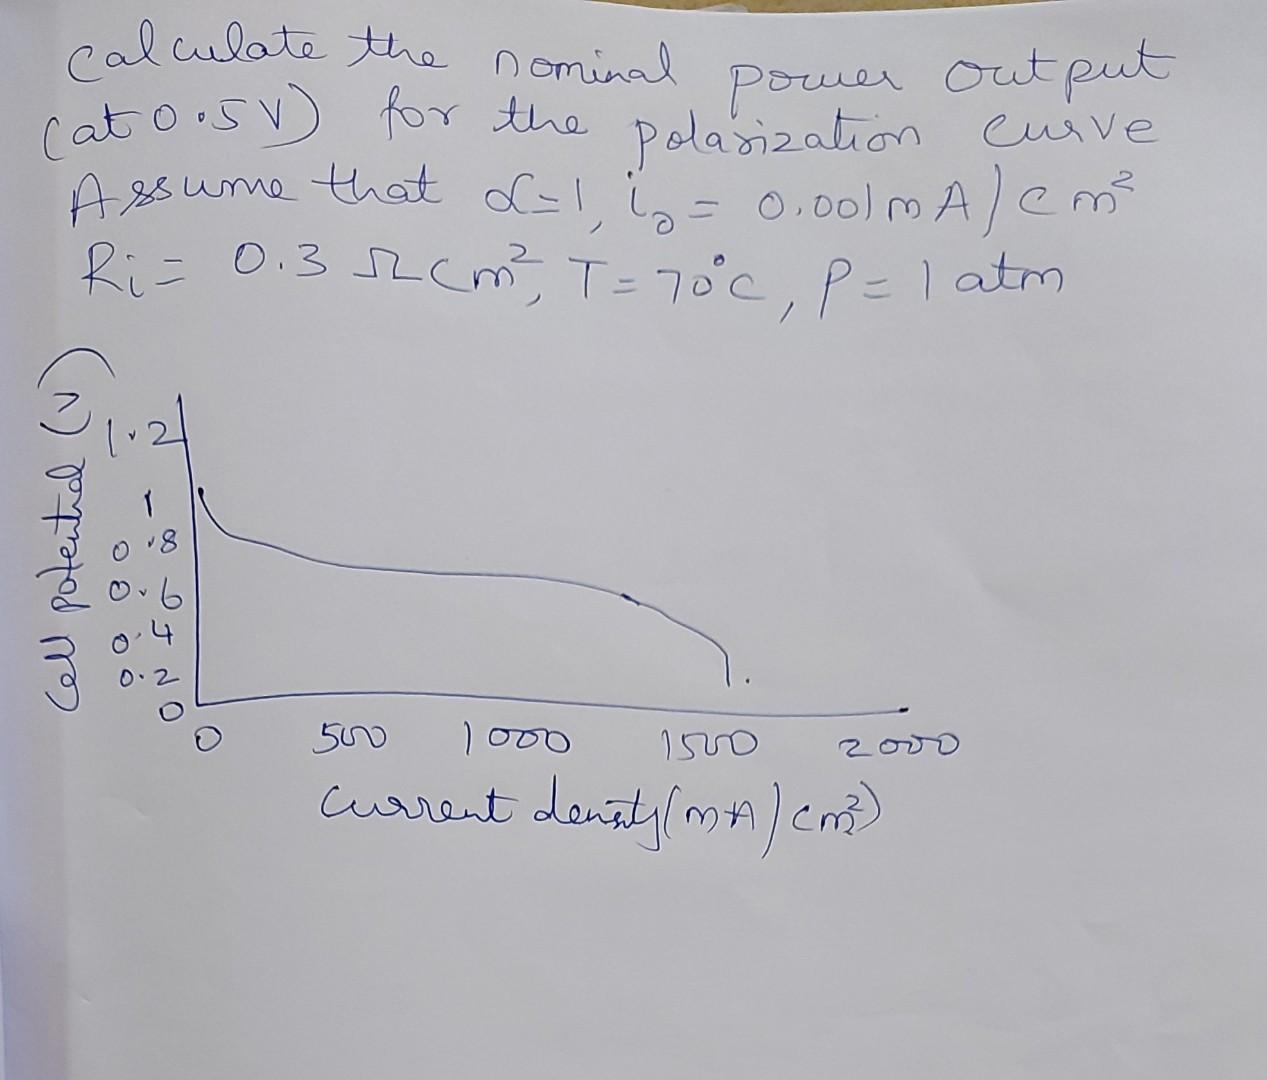 Calculate the nominal power output
(at 0.5 V) for the polarization curve
Assume that α=1, i₀ = 0.001 mA/cm²
Ri = 0.3 Ωcm², T = 70°C, P = 1 atm
Cell potential (V)
1.2
1
0.8
0.6
0.4
0.2
0
0 500 1000 1500 2000
Current density (mA/cm²)